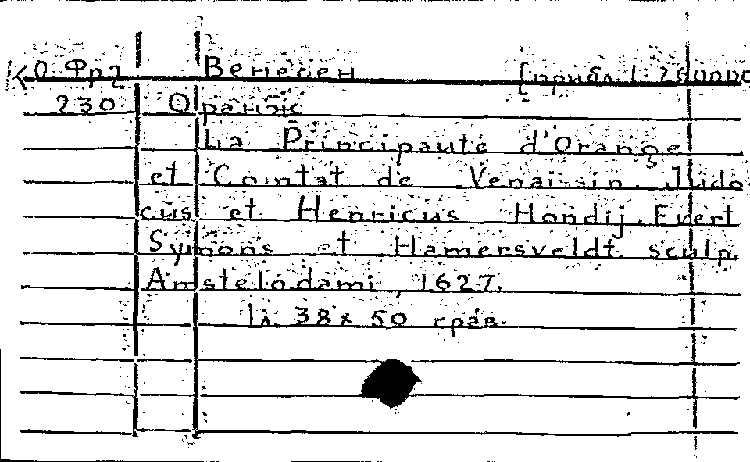 К О Фр2 Венесен [прибл. 1:260000
230 Оранж
La Principaute d'Orange
et Comtat de Venaissin. Judo
cus et Henricus Hondij. Evert
Symons et Hamersveldt sculp.
Amstelodami, 1627.
1 л. 38 x 50 грав.